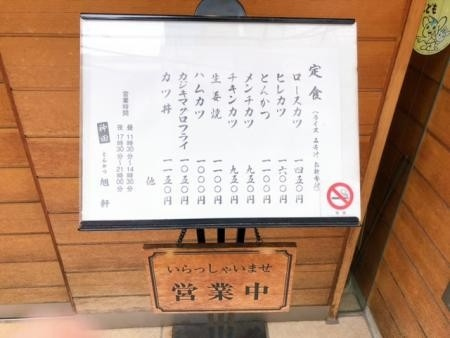 定食
(ライス みそ汁 お新香付)
ロースカツ 一四五〇円
ヒレカツ 一六〇〇円
とんかつ 一一〇〇円
メンチカツ 九五〇円
チキンカツ 九五〇円
生姜焼 一一〇〇円
ハムカツ 一〇〇〇円
カジキマグロフライ 一〇五〇円
カツ丼 一一五〇円
他
営業時間
昼 11時30分~14時30分
夜 17時30分~21時00分
神田 とんかつ 旭軒
いらっしゃいませ
営業中